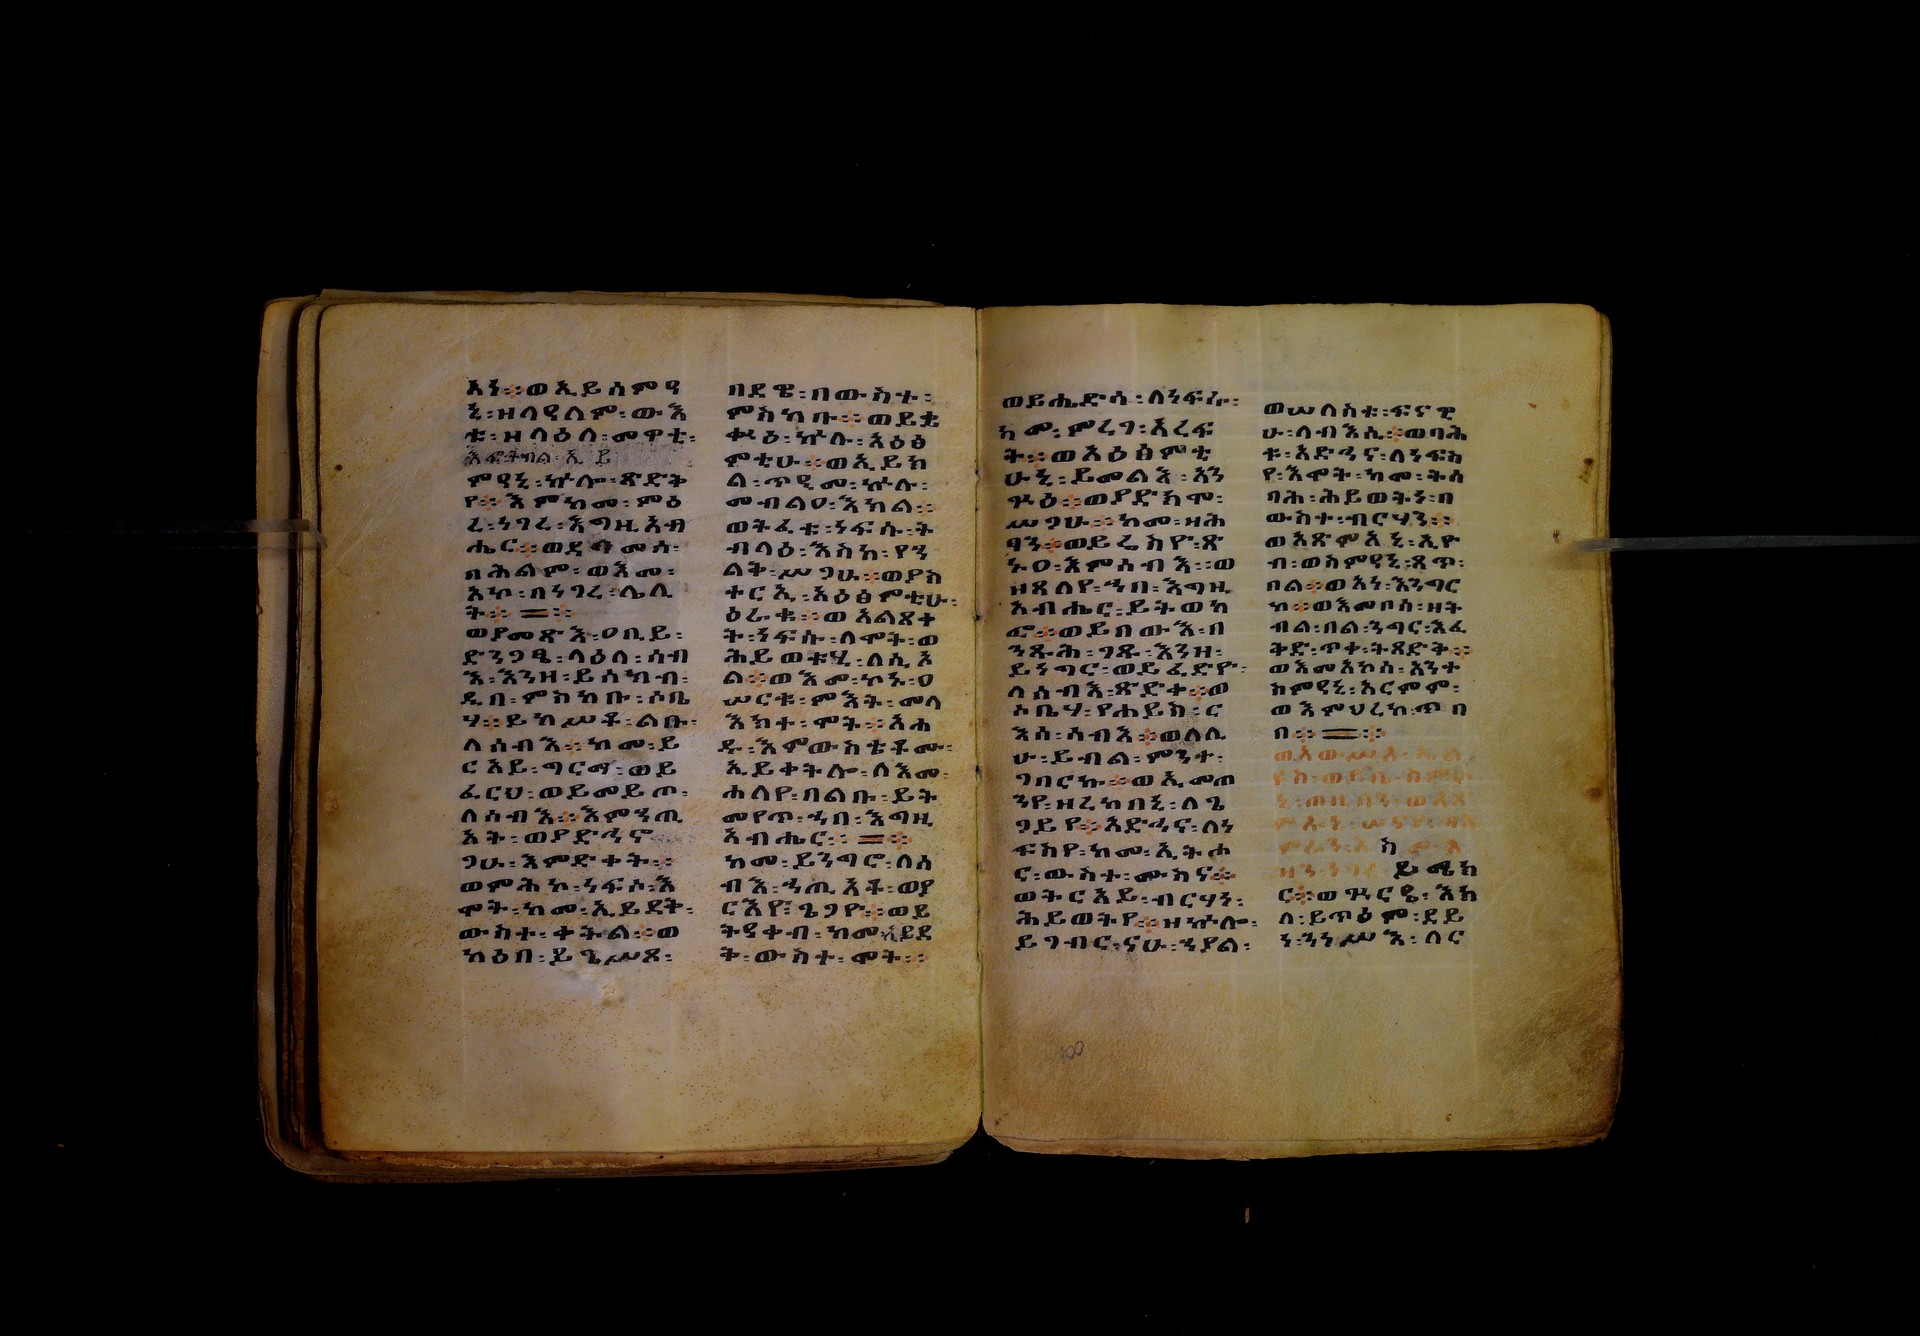 አነ፡፡ወኢይሰምዓ
ኒ፡ዘላዳለም፡ውእ
ቱ፡ዘላዕለ፡መዋቲ፡
ምዳኒ፡ኵሎ፡ጽድቅ
የ፡፡እምከመ፡ምዕ
ረ፡ነገረ፡እግዚአብ
ሔር፡፡ወደ
በሕልም፡ወእመ፡
አኮ፡በነገረ፡ሌሊ
ት፡፡
ወያመጽእ፡ዐቢይ፡
ድንጋፄ፡ላዕለ፡ሰብ
እ፡እንዘ፡ይሰክብ፡
ዲበ፡ምስካቡ፡ሶቤ
ሃ፡፡ይከሥቶ፡ልቡ፡
ለሰብእ፡፡ከመ፡ይ
ርአይ፡ግርማ፡ወይ
ፈርህ፡ወይመይጦ፡
ለሰብእ፡፡እምኃጢ
አት፡ወያድኅኖ
ጋሁ፡እምድቀት፡፡
ወምሕኮ፡ነፍሶ፡እ
ሞት፡ከመ፡ኢይደቅ፡
ውስተ፡ቀትል፡፡ወ
ካዕበ፡ይጌሥጾ፡
በደዌ፡በውስተ፡
ምስካቡ፡፡ወይቷ
ቍዕ፡ኵሉ፡አዕፅ
ምቲሁ፡፡ወኢይክ
ል፡ጥዒመ፡ኵሉ፡
መብልዐ፡እክል፡፡
ወትፈቱ፡ነፍሱ፡ት
ብላዕ፡እስከ፡የኃ
ልቅ፡ሥጋሁ፡፡ወያስ
ተርኢ፡አዕፅምቲሁ፡
ዕራቁ፡፡ወአልጸቀ
ት፡ነፍሱ፡ለሞት፡ወ
ሕይወቱሂ፡ለሲኦ
ል፡፡ወእመ፡ኮኑ፡ዐ
ሠርቱ፡ምእት፡መላ
እክተ፡ሞት፡፡አሐ
ዱ፡እምውስቴቶሙ፡
ኢይቀትሎ፡ለእመ፡
ሐለየ፡በልቡ፡ይት
መየጥ፡ኀበ፡እግዚ
አብሔር፡፡
ከመ፡ይንግሮ፡ለሰ
ብእ፡ኀጢአቶ፡ወያ
ርእየ፡ጌጋዮ፡፡ወይ
ትዓቀብ፡ከመ፡ኢይደ
ቅ፡ውስተ፡ሞት፡፡
ወይሔድሳ፡ለነፍሱ፡
ከመ፡ምረገ፡አረፍ
ት፡፡ወአዕፅምቲ
ሁኒ፡ይመልእ፡አን
ጕዕ፡፡ወያድክሞ፡
ሥጋሁ፡፡ከመ፡ዛሕ
ፃን፡፡ወይሬስዮ፡ጽ
ኑዐ፡እምሰብእ፡፡ወ
ዘጸለየ፡ኀበ፡እግዚ
አብሔር፡ይትወከ
ፎ፡፡ወይበውእ፡በ
ንጹሕ፡ገጹ፡እንዘ፡
ይነግር፡ወይፈድዮ፡
ለሰብእ፡ጽድቀ፡፡ወ
ሶቤሃ፡የሐይክ፡ር
እሰ፡ሰብእ፡፡ወለሊ
ሁ፡ይብል፡ምንተ፡
ገበርኩ፡፡ወኢመጠ
ንየ፡ዘረከበኒ፡ለጌ
ጋይየ፡፡አድኅና፡ለነ
ፍስየ፡ከመ፡ኢትሐ
ር፡ውስተ፡ሙስና፡፡
ወትርአይ፡ብርሃነ፡
ሕይወትየ፡፡ዘኵሎ፡
ይገብር፡ናሁ፡ኃያል፡
ወሠለስቱ፡ፍናዊ
ሁ፡ለብእሲ፡፡ወባሕ
ቱ፡አድኀና፡ለነፍስ
የ፡እሞት፡ከመ፡ትሰ
ባሕ፡ሕይወትየ፡በ
ውስተ፡ብርሃን፡፡
ወአጽምአኒ፡ኢዮ
ብ፡ወስምዓኒ፡ጸጥ፡
በል፡፡ወአነ፡እንግር
ከ፡፡ወእመቦሰ፡ዘት
ብል፡በል፡ንግር፡እፈ
ትድ፡ጥቀ፡ትጸድቅ፡፡
ወእመአኮሰ፡አንተ
ስምዓኒ፡አርምም፡
ወእምህረከ፡ጥበ
በ፡፡
ይሜክ
ር፡፡ወጕርዔ፡እክ
ለ፡ይጥዕም፡ደይ
ነ፡ንነሥእ፡ለር